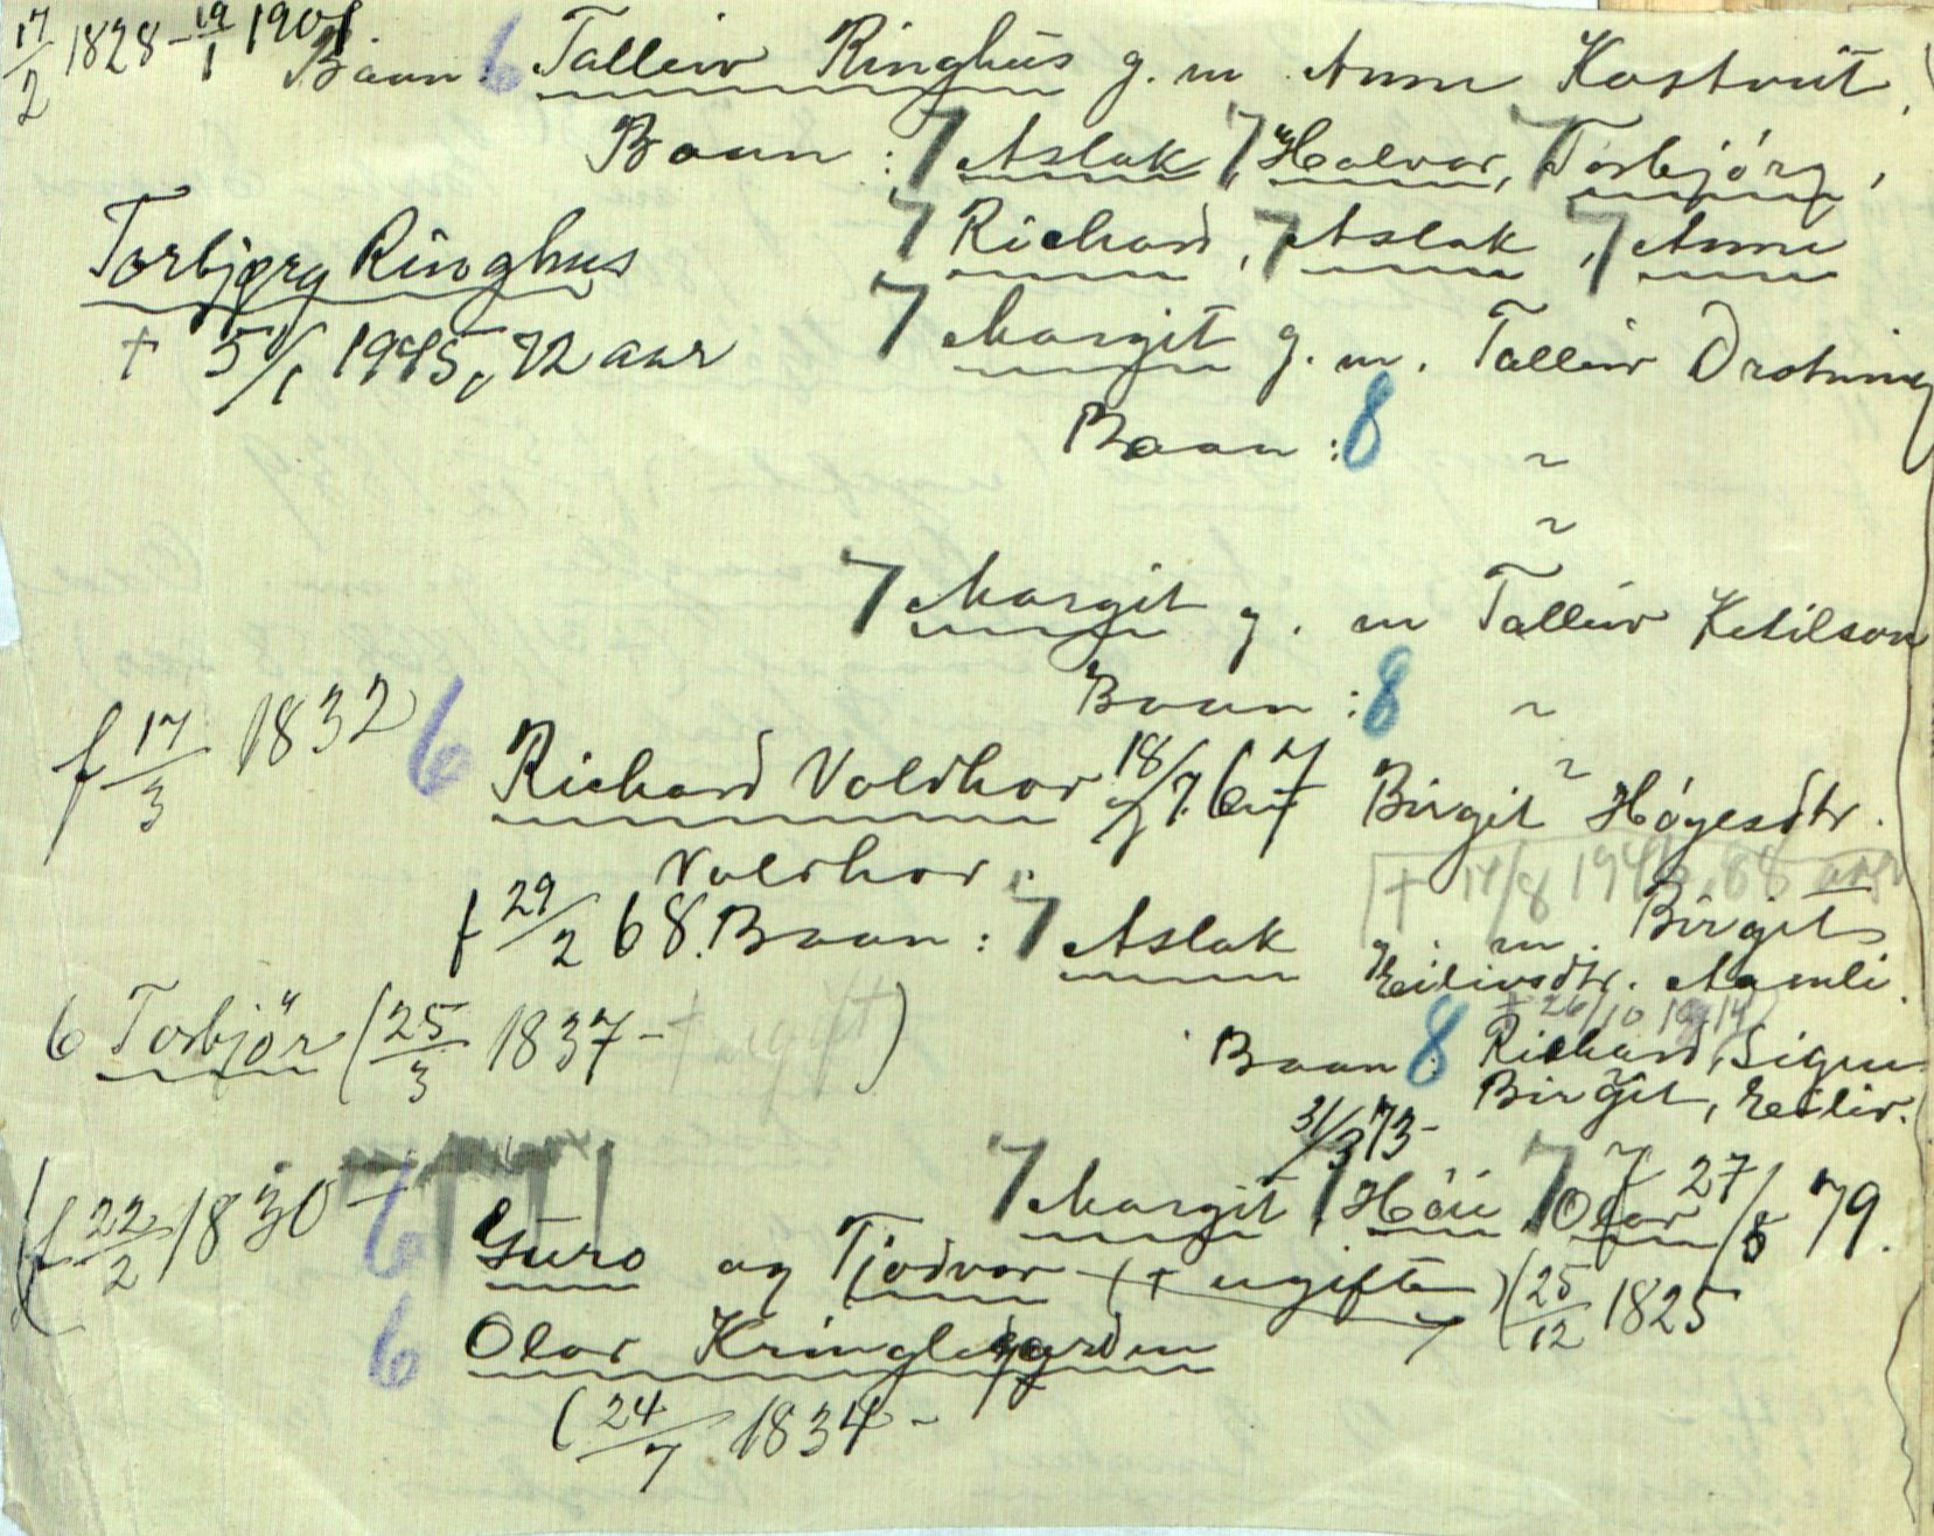 17/2 1828 - 19/1 1901.
Baan: 6 Talleiv Ringhus g. m. Anne Kostveit,
Baan: 7 Aslak, 7 Halvor, 7 Torbjörg,
7 Richard, 7 Aslak, 7 Anne
Torbjørg Ringhus
+ 5/1 1945, 72 aar
7 Margit g. m. Talleiv Drotning
Baan: 8 ~
~
7 Margit g. m Talleiv Ketilson
Baan: 8 ~
~
f 17/3 1832 6 Richard Valdhov 18/7 67 Birgit Högesdtr.
Valdhov.
+ 14/8 88 aar
f 29/2 68. Baan: 7 Aslak g. m. Birgit
Eilivsdtr. Aamli.
+ 26/10 1914)
6 Torbjör (25/3 1837 - + ugift)
Baan 8: Richard, Signe
Birgit, Eiliv.
31/3 73-
7 Margit, 7 Höie, 7 Olav 27/8 79.
(f 22/2 1830 - 6 Guro og Tjodvor (+ ugifte) (25/12 1825
6 Olav Kringlegarden
(24/7 1834 -